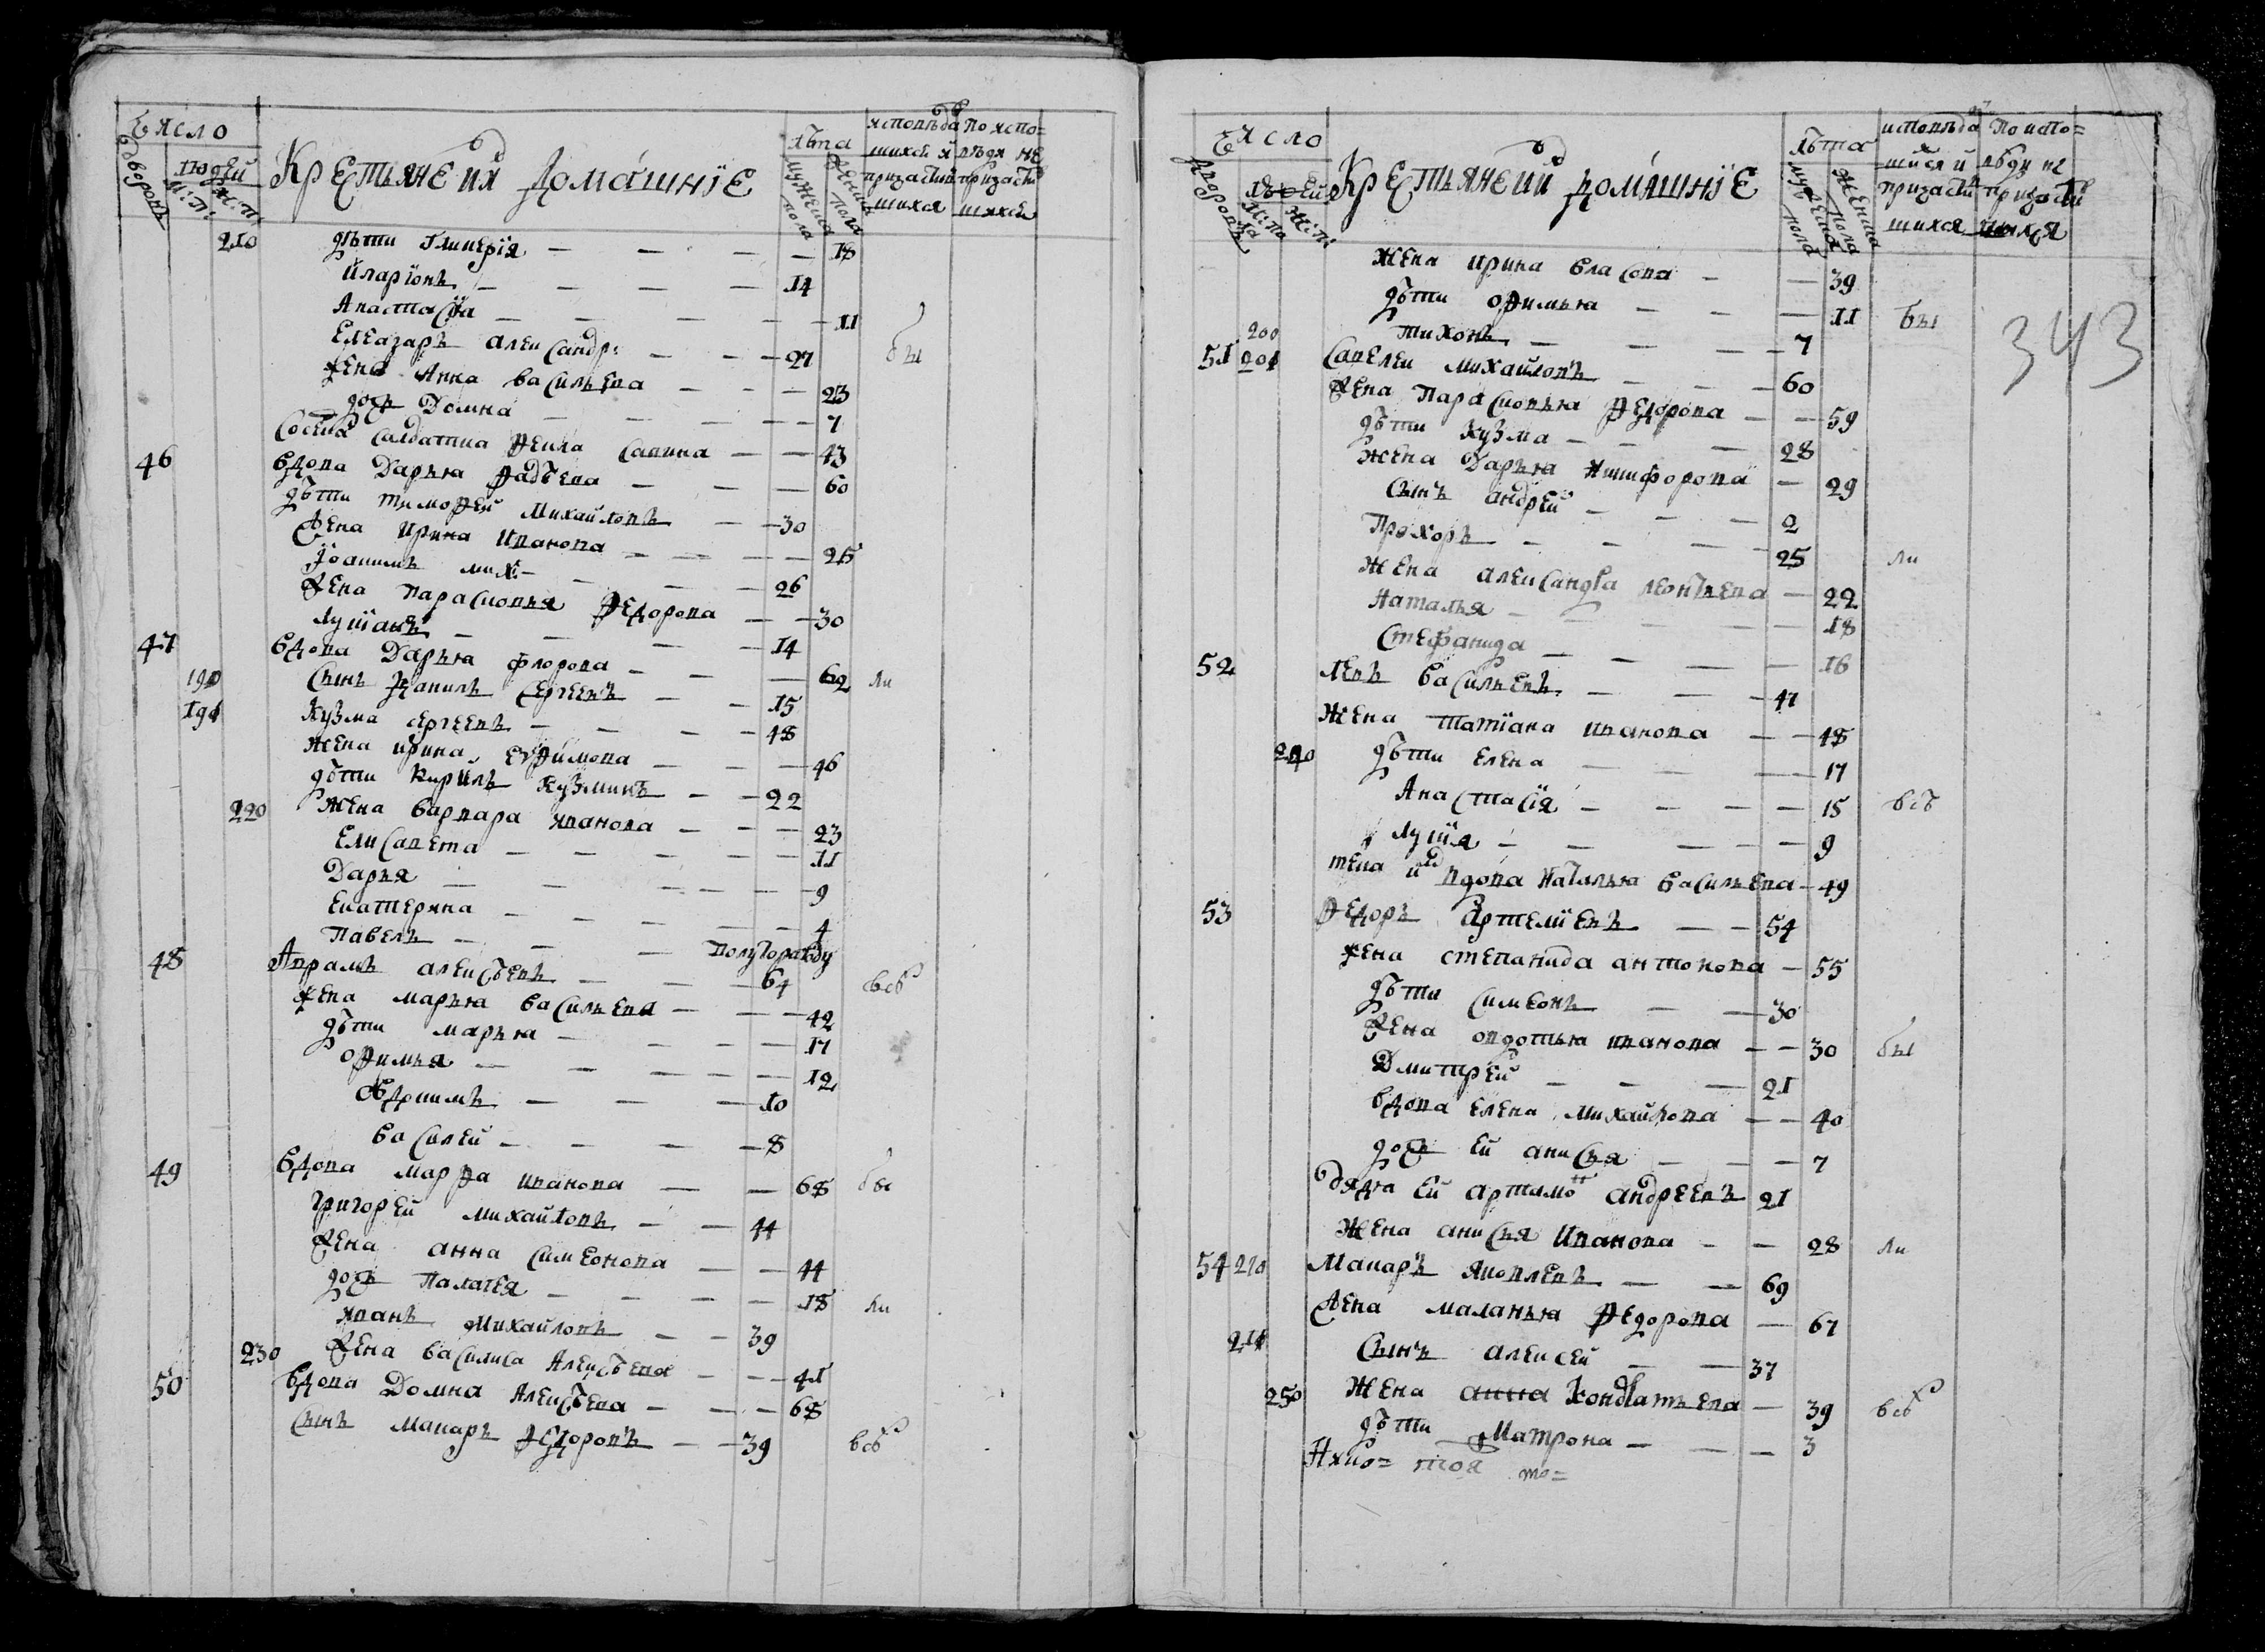 Число
дворовъ
людей
м: п:
ж: п:
Крестьяне и ихъ домашніе
лѣта
мужеска пола
женска пола
исповѣдавшихся и причастившихся
По исповѣди не причастившихся
210 дѣти Гликерія — — — — 18
Иларіонъ — — — — 14
Анастасія — — — — 11
Елеазаръ Александр: — — — 27 бы
жена Анна Васильева — — — 23
дочь Домна — — — — 7
салдатка Фекла Савина — — 43
46 вдова Дарья Фадѣева — — — 60
дѣти Тимофей Михайловъ — — 30
жена Ирина Иванова — — — — 25
Іоакимъ мих: — — — 26
жена Парасковья Федорова — — 30
Лукіанъ — — — — 14
47 вдова Дарья Флорова — — — 62 ли
190 сынъ Данилъ Сергеевъ — — 15
191 Кузма Сергеевъ — — — — 48
жена Ирина Ефимова — — — 46
дѣти Кирилъ Кузминъ — — 22
220 жена Варвара Иванова — — — 23
Елисавета — — — — — 11
Дарья — — — — — 9
Екатерина — — — — — 4
Павелъ — — — Полутора году
48 Аврамъ Алексѣевъ — — — 64 всѣ
жена Марья Васильева — — — 42
дѣти Марья — — — — 17
Офимья — — — — — 12
Евдокимъ — — — — 10
Василей — — — — 8
49 вдова Марфа Иванова — — 68 бы
Григорей Михайловъ — — 44
жена Анна Симеонова — — 44
дочь Палагея — — — — 18 ли
Иванъ Михайловъ — — 39
230 жена Василиса Алексѣева — — — 41
50 вдова Домна Алексѣева — — — 68
сынъ Макаръ Федоровъ — — 39 всѣ
Число
дворовъ
людей
м: п:
ж: п:
Крестьяне и ихъ домашніе
лѣта
мужеска пола
женска пола
исповѣдавшихся и причастившихся
По исповѣди не причастившихся
343
жена Ирина Власова — — 39
дѣти Офимья — — — 11 бы
200 Тихонъ — — — — 7
51 201 Савелей Михайловъ — — — 60
жена Парасковья Федорова — — 59
дѣти Кузма — — — 28
жена Дарья Никифорова — 29
сынъ Андрей — — — 2
Прохоръ — — — — 25 ли
жена Александра Леонтьева — 22
Наталья — — — — — 18
Стефанида — — — — 16
52 Левъ Васильевъ — — — 47
жена Татіана Иванова — — 48
240 дѣти Елена — — — — 17
Анастасія — — — — 15 всѣ
Лукія — — — — — 9
вдова Наталья Васильева — 49
53 Федоръ Артеміевъ — — 54
жена Степанида Антонова — 55
дѣти Симеонъ — — 30
жена Овдотья Иванова — — 30 бы
Дмитрей — — — 21
вдова Елена Михайлова — — 40
дочь ей Анисья — — — 7
ей Артамонъ Андреевъ 21
жена Анисья Иванова — — 28 ли
54 210 Макаръ Яковлевъ — — 69
жена Маланья Федорова — 67
211 сынъ Алексей — — 37
250 жена Анна Кондратьева — 39 всѣ
дѣти Матрона — — — 3